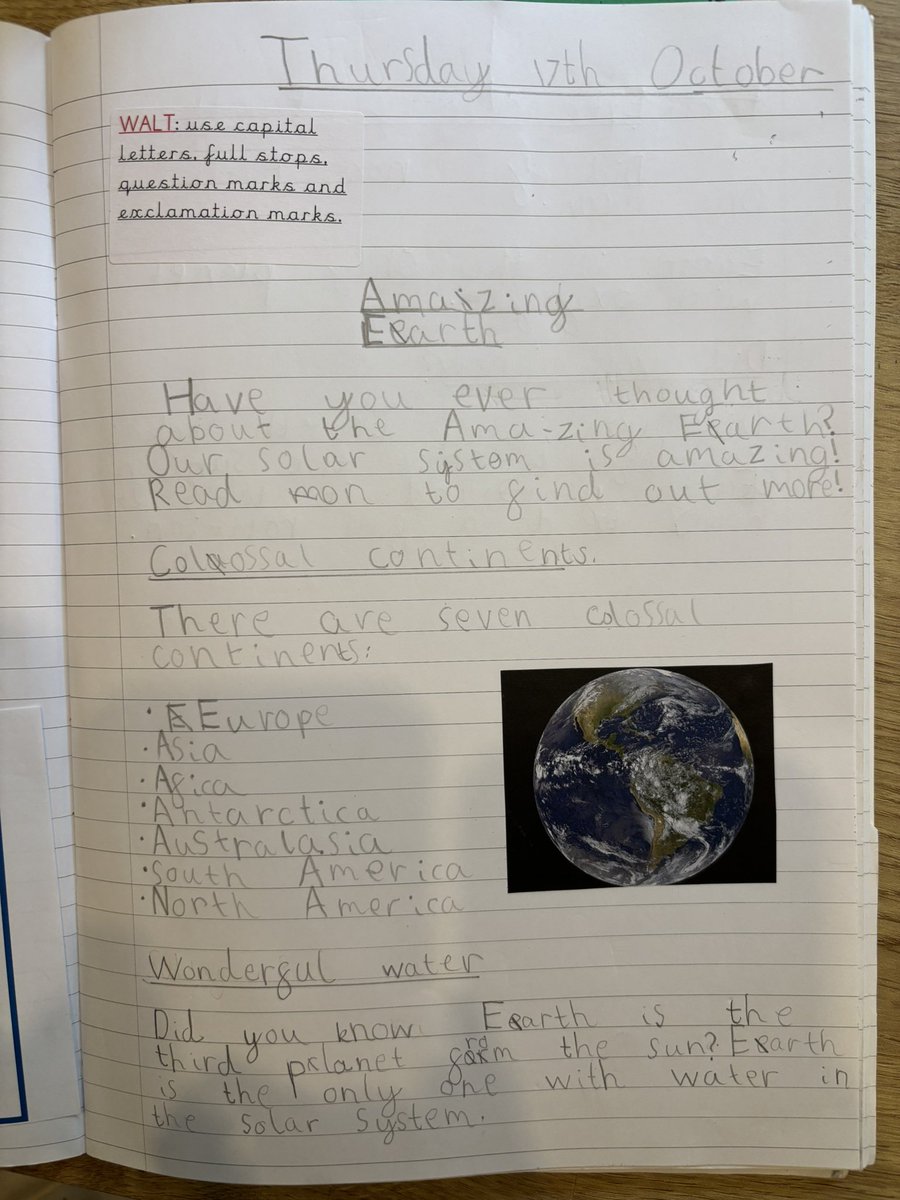 Thursday 17th October
WALT: use capital
letters, full stops,
question marks and
exclamation marks.
Amaizing
Earth
Have you ever thought
about the Ama-zing Earth?
Our solar system is amazing!
Read on to find out more!
Colossal continents.
There are seven colossal
continents:
· Europe
· Asia
· Afica
· Antarctica
· Australasia
· South America
· North America
Wonderful water
Did you know Earth is the
third planet from the sun? Earth
is the only one with water in
the solar system.